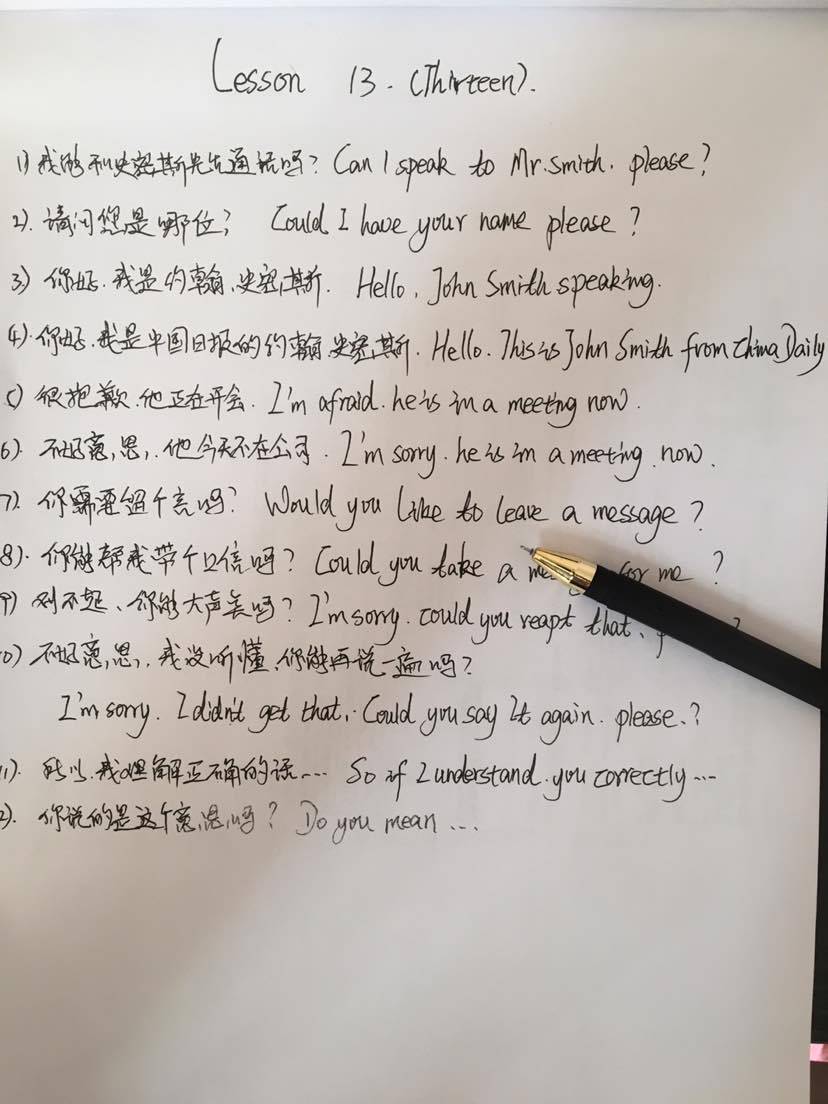 Lesson 13. (Thirteen).
1) 我能和史密斯先生通话吗? Can I speak to Mr. Smith. please?
2). 请问您是哪位? Could I have your name please?
3) 你好. 我是约翰.史密斯. Hello, John Smith speaking.
4). 你好. 我是中国日报的约翰.史密斯. Hello. This is John Smith from China Daily
5) 很抱歉. 他正在开会. I'm afraid. he is in a meeting now.
6). 不好意思,. 他今天不在公司. I'm sorry. he is in a meeting. now.
7). 你需要留个言吗? Would you like to leave a message?
8). 你能帮我带个口信吗? Could you take a for me ?
9) 对不起、你能大声点吗? I'm sorry. could you reapt that、
0) 不好意思,. 我没听懂. 你能再说一遍吗?
I'm sorry. I didn't get that,. Could you say It again. please.?
11). 所以. 我理解正确的话… So if I understand. you correctly …
2). 你说的是这个意思吗? Do you mean …